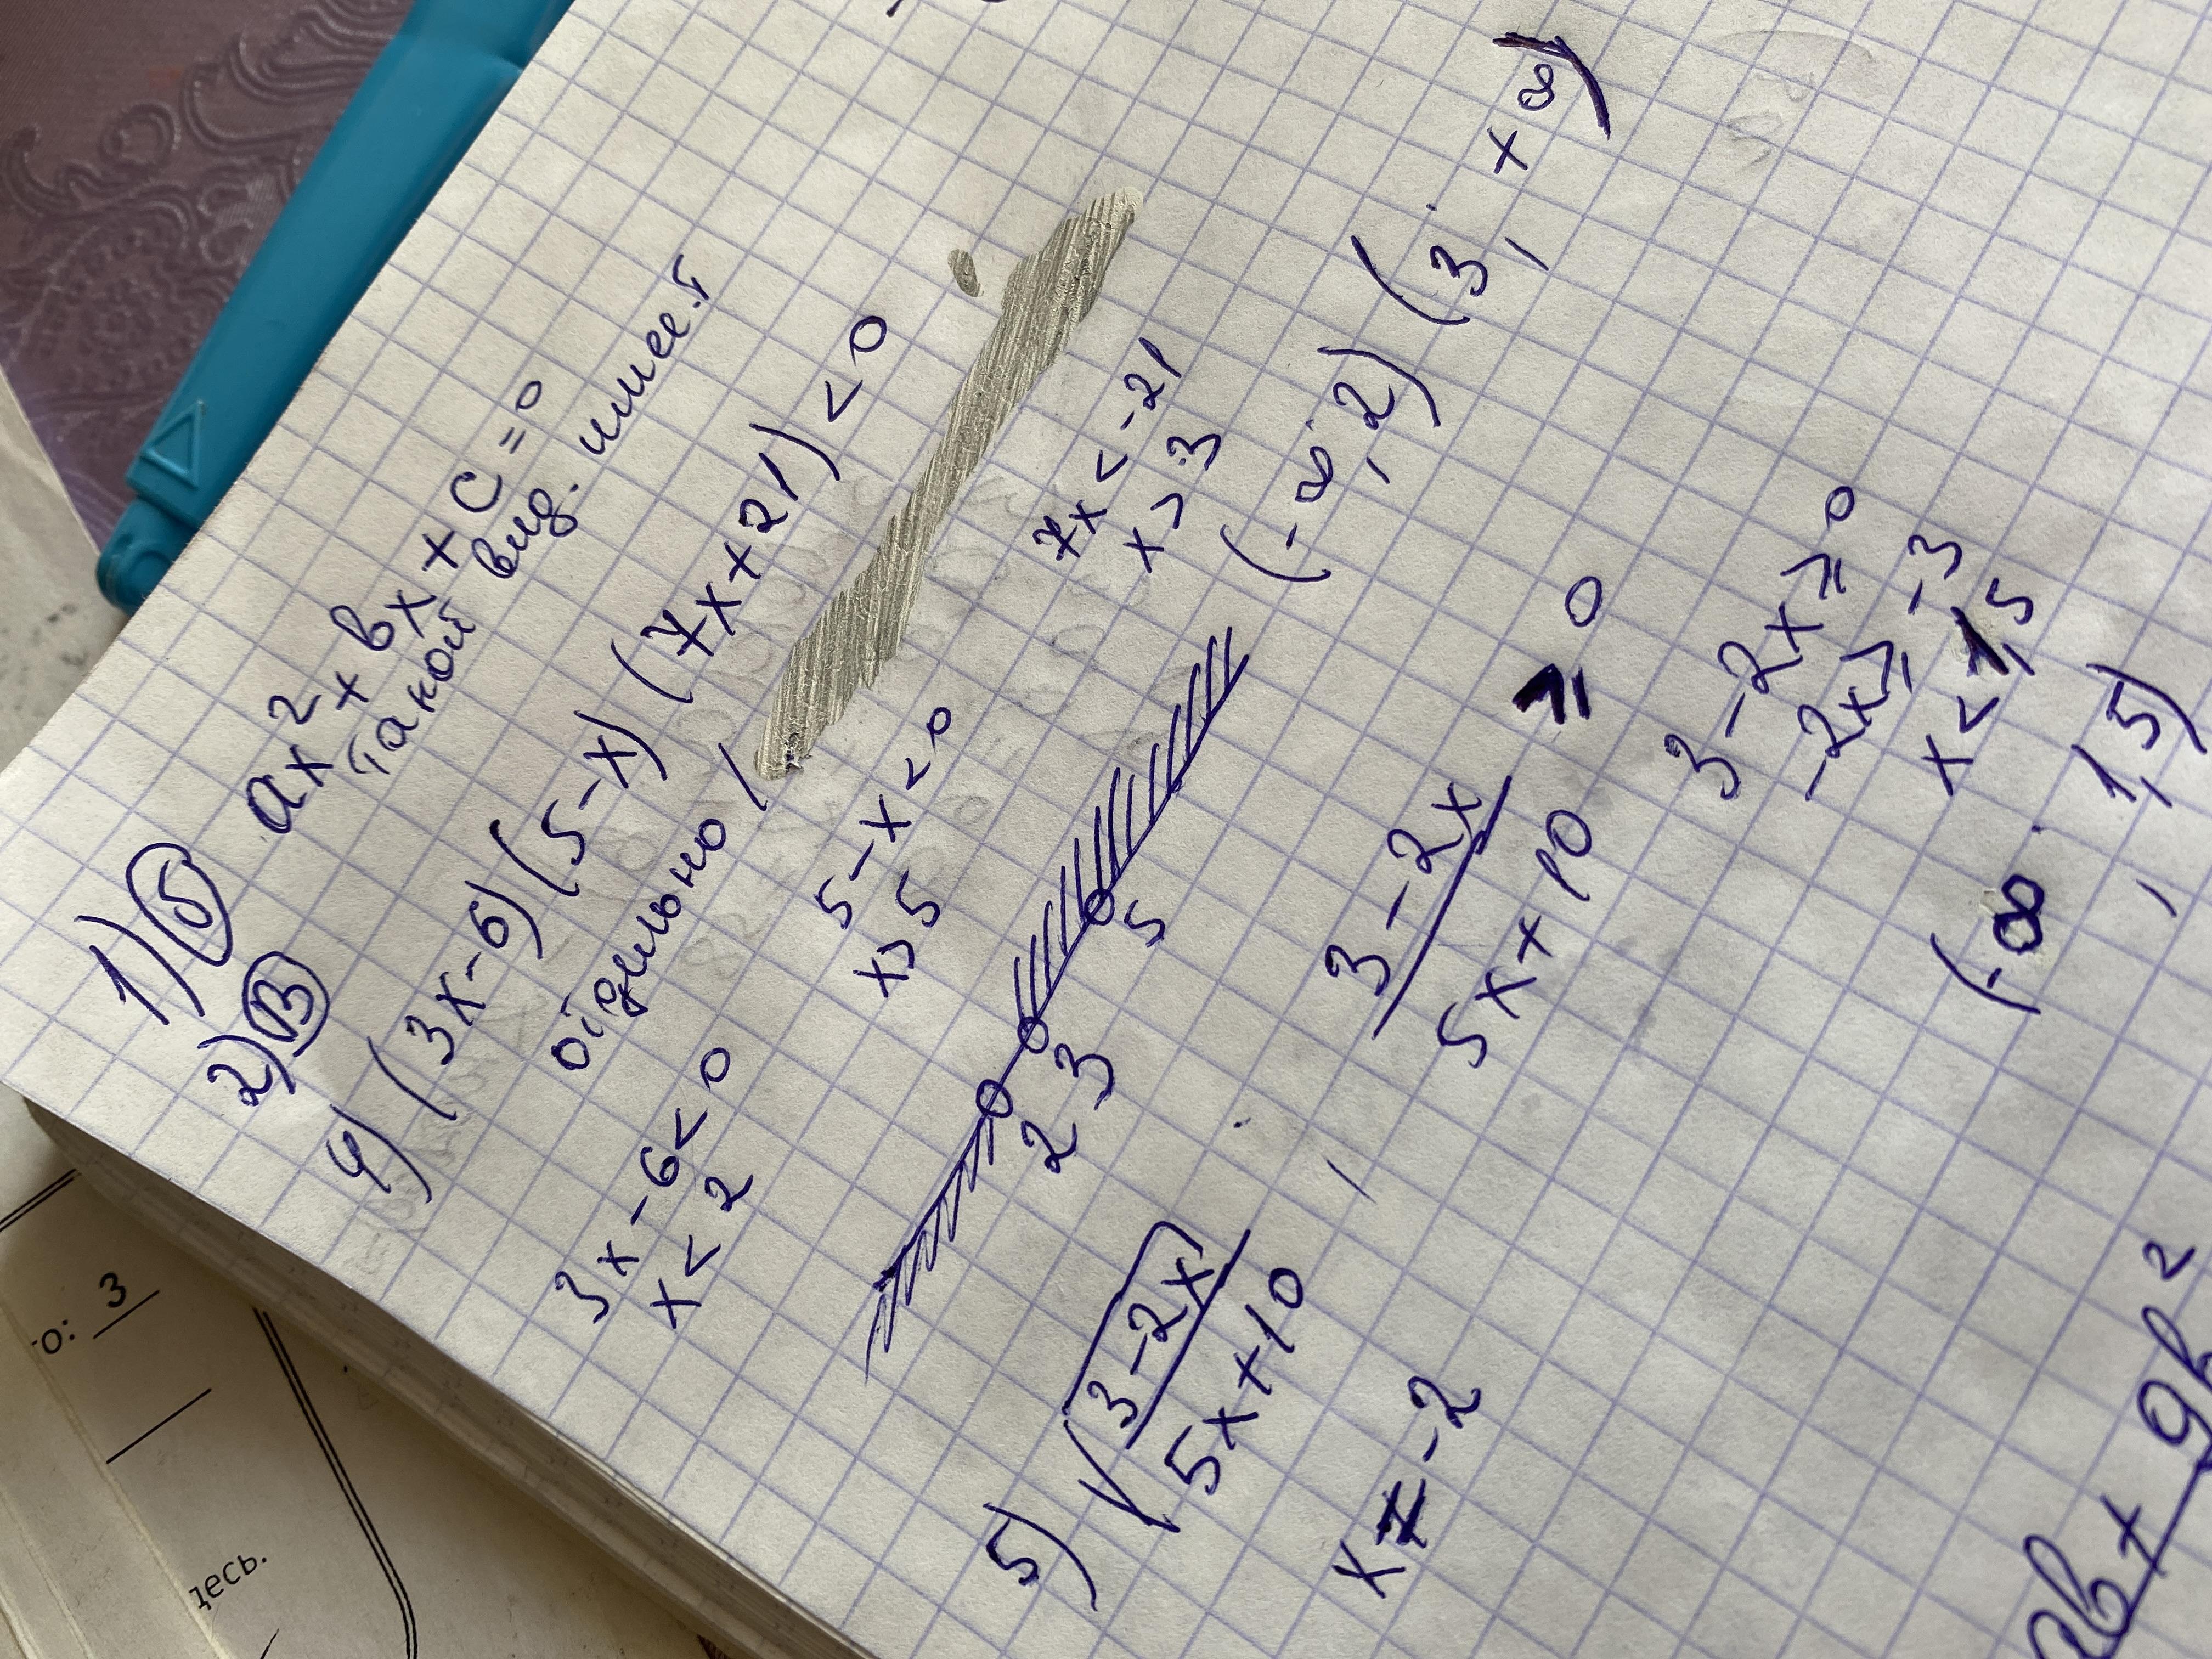 1) б ax² + bx + c = 0
такой вид. имеет
2) В
4) (3x-6)(5-x)(7x+21) < 0
отдельно /
3x-6<0 5-x<0 7x<-21
x<2 x>5 x>3
2 3 5 (-∞; 2) (3; +∞)
5) √3-2x / 5x+10 , 3-2x / 5x+10 ⩾ 0
x≠-2 3-2x⩾0
-2x⩾-3
x<1,5
(-∞; 1,5)
2b + 9b²
о: 3
десь.